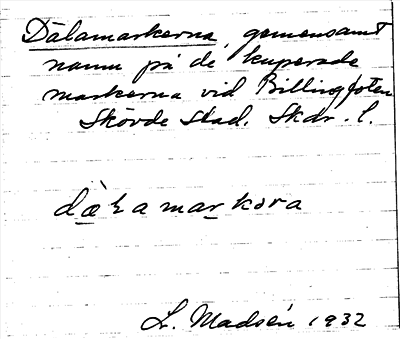 Dälamarkerna, gemensamt
namn på de kuperade
markerna vid Billingfoten
Skövde stad. Skar. l.
dälamarkora
L. Madsén 1932